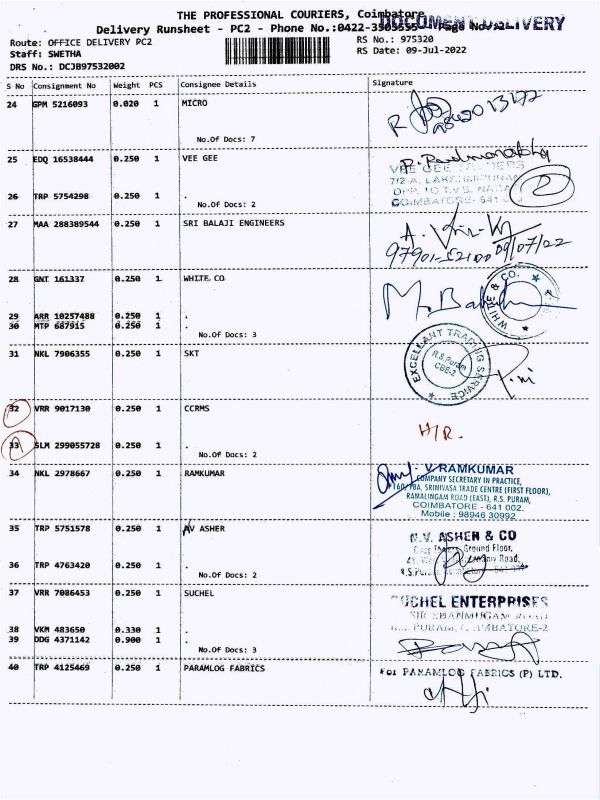 THE PROFESSIONAL COURIERS, Coimbatore
DOCUMENT DELIVERY
Delivery Runsheet - PC2 - Phone No.:0422-3505555 Page No.:2
Route: OFFICE DELIVERY PC2
RS No.: 975320
Staff: SWETHA
RS Date: 09-Jul-2022
DRS No.: DCJB97532002
S No Consignment No Weight PCS Consignee Details Signature
24 GPM 5216093 0.020 1 MICRO
No.Of Docs: 7
25 EDQ 16538444 0.250 1 VEE GEE
VEE GEE TRADERS
7/2-A, LAKSHMIPURAM
26 TRP 5754298 0.250 1 .
OPP. TO T.V.S. NAGAR
No.Of Docs: 2
2
COIMBATORE- 641
27 MAA 288389544 0.250 1 SRI BALAJI ENGINEERS
97901-52100 09/07/22
28 GNT 161337 0.250 1 WHITE CO
WHITE & CO.
29 ARR 10257488 0.250 1 .
30 MTP 687915 0.250 1 .
No.Of Docs: 3
31 NKL 7906355 0.250 1 SKT
EXCELLANT TRADING SERVICE
R.S.Puram
CBE-2
32 VRR 9017130 0.250 1 CCRMS
H/R.
33 SLM 299055728 0.250 1 .
No.Of Docs: 2
34 NKL 2978667 0.250 1 RAMKUMAR
V. RAMKUMAR
COMPANY SECRETARY IN PRACTICE,
160/78A, SRINIVASA TRADE CENTRE (FIRST FLOOR),
RAMALINGAM ROAD (EAST), R.S. PURAM,
COIMBATORE - 641 002.
Mobile : 98946 30992
35 TRP 5751578 0.250 1 AV ASHER
N.V. ASHER & CO
Ground Floor,
Road,
36 TRP 4763420 0.250 1 .
No.Of Docs: 2
37 VRR 7086453 0.250 1 SUCHEL
SUCHEL ENTERPRISES
SIR SHANMUGAM ROAD
R.S. PURAM, COIMBATORE-2
38 VKM 483650 0.330 1 .
39 DDG 4371142 0.900 1 .
No.Of Docs: 3
40 TRP 4125469 0.250 1 PARAMLOG FABRICS
For PARAMLOG FABRICS (P) LTD.